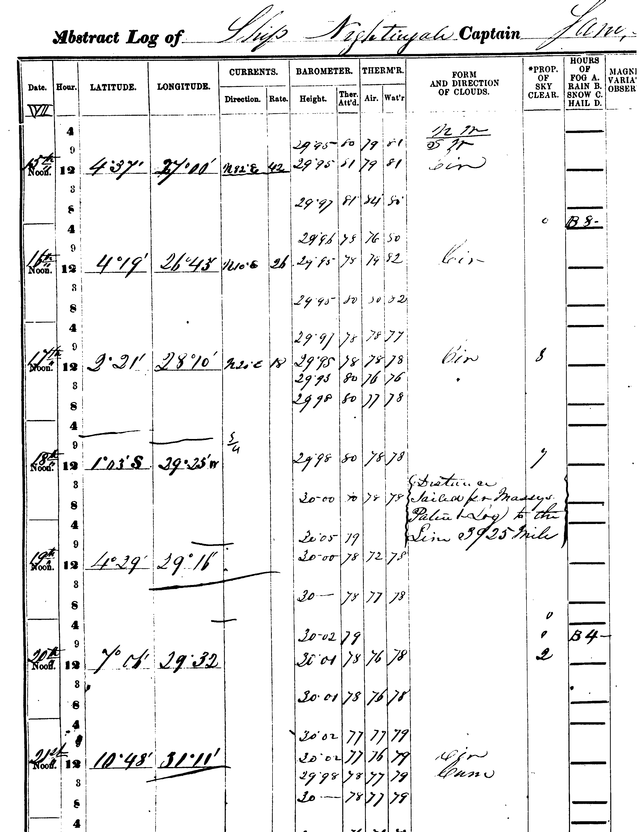 Abstract Log of Ship Nightingale Captain
Date. Hour. LATITUDE. LONGITUDE. CURRENTS. BAROMETER. THERM'R. FORM AND DIRECTION OF CLOUDS. *PROP. OF SKY CLEAR. HOURS OF FOG A. RAIN B. SNOW C. HAIL D. MAGNE VARIAT OBSERV
Direction. Rate. Height. Ther. Att'd. Air. Wat'r
VII
4
9 29.95 80 79 81
15th Noon. 12 4°37' 27°00' 42 29.95 81 79 81 Cir
3
8 29.97 81
4 0 B 8-
9 29.96 78 76 80
16th Noon. 12 4°19' 26°43' 26 29.95 78 82 Cir
3
8 29.95 80
4
9 29.97 78 78 77
17th Noon. 12 2°21' 28°10' 18 29.95 78 78 78 Cir 8
3 29.93 80 76 76
8 29.98 80 77 78
4
9
18th Noon. 12 1°03' S 29°25' W 29.98 80 78 78 7
3 Distance
8 30.00 78 78 Sailed per Masseys
4 Patent Log to the
9 30.05 79 Line 3925 Mile
19th Noon. 12 4°29' 29°16' 30.00 78 72 78
3
8 30 — 78 77 78
4 0
9 30.02 79 B 4-
20th Noon. 12 7°06' 29°32 30.01 78 76 78 2
3
8 30.01 78 76 78
4
9 30.02 77 77 79
21st Noon. 12 10°48' 31°11' 30.02 77 76 79 Cir
3 29.98 78 77 79 Cum
8 30 — 78 77 79
4